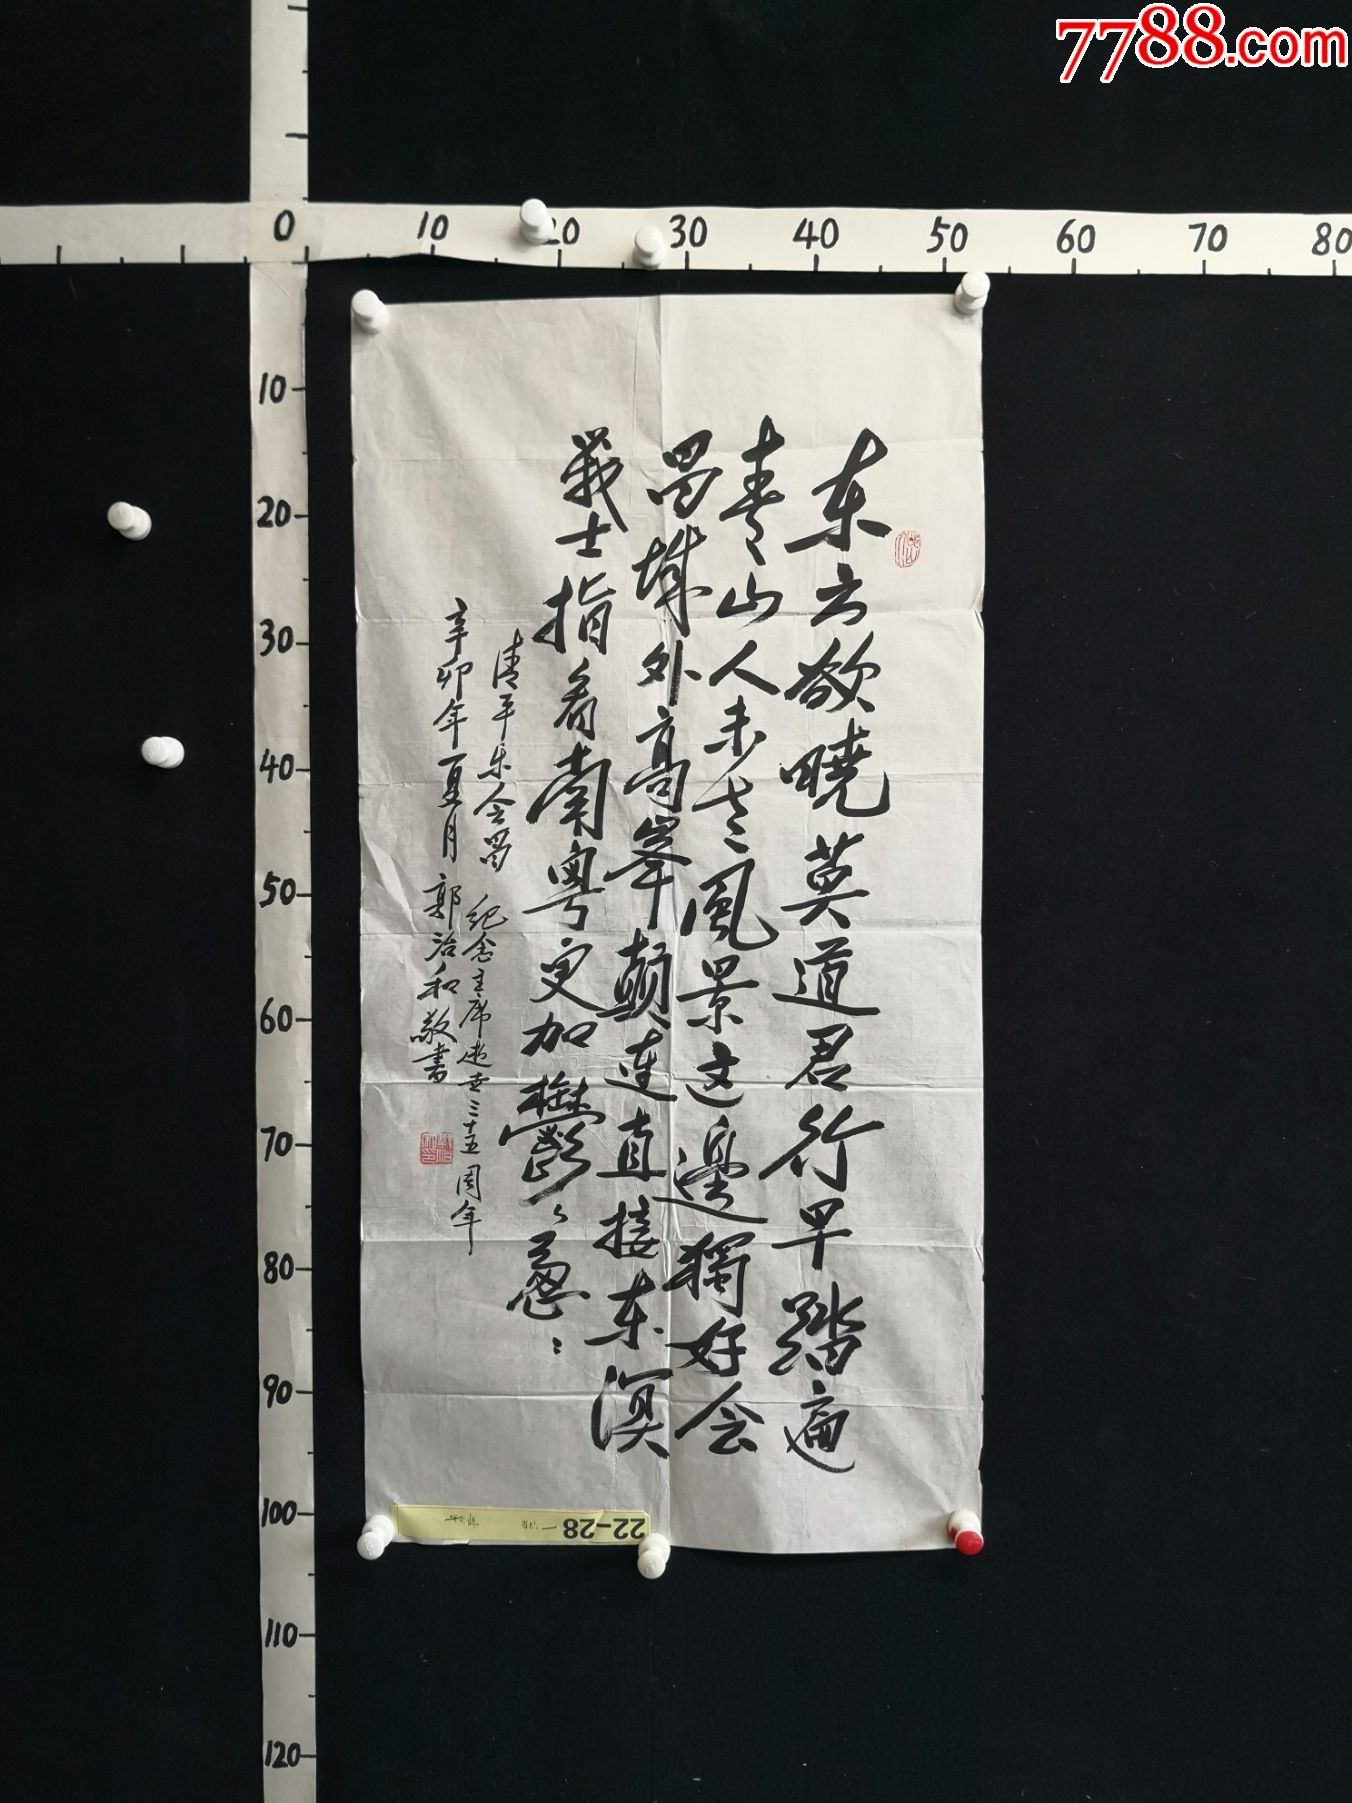 7788.com
0 10 20 30 40 50 60 70 80
10
20
30
40
50
60
70
80
90
100
110
120
东方欲晓莫道君行早踏遍
青山人未老风景这邊獨好会
昌城外高峯颠连直接东溟
战士指看南粤更加鬱々葱々
清平乐会昌 纪念主席逝世三十五周年
辛卯年夏月 郭治和敬书
22-28